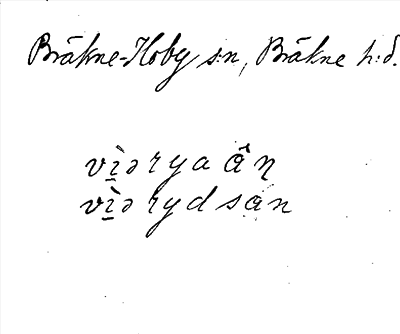 Bräkne-Hoby s:n, Bräkne h:d.
vì̱ə rya â̄ɳ
vì̱ə ryd san